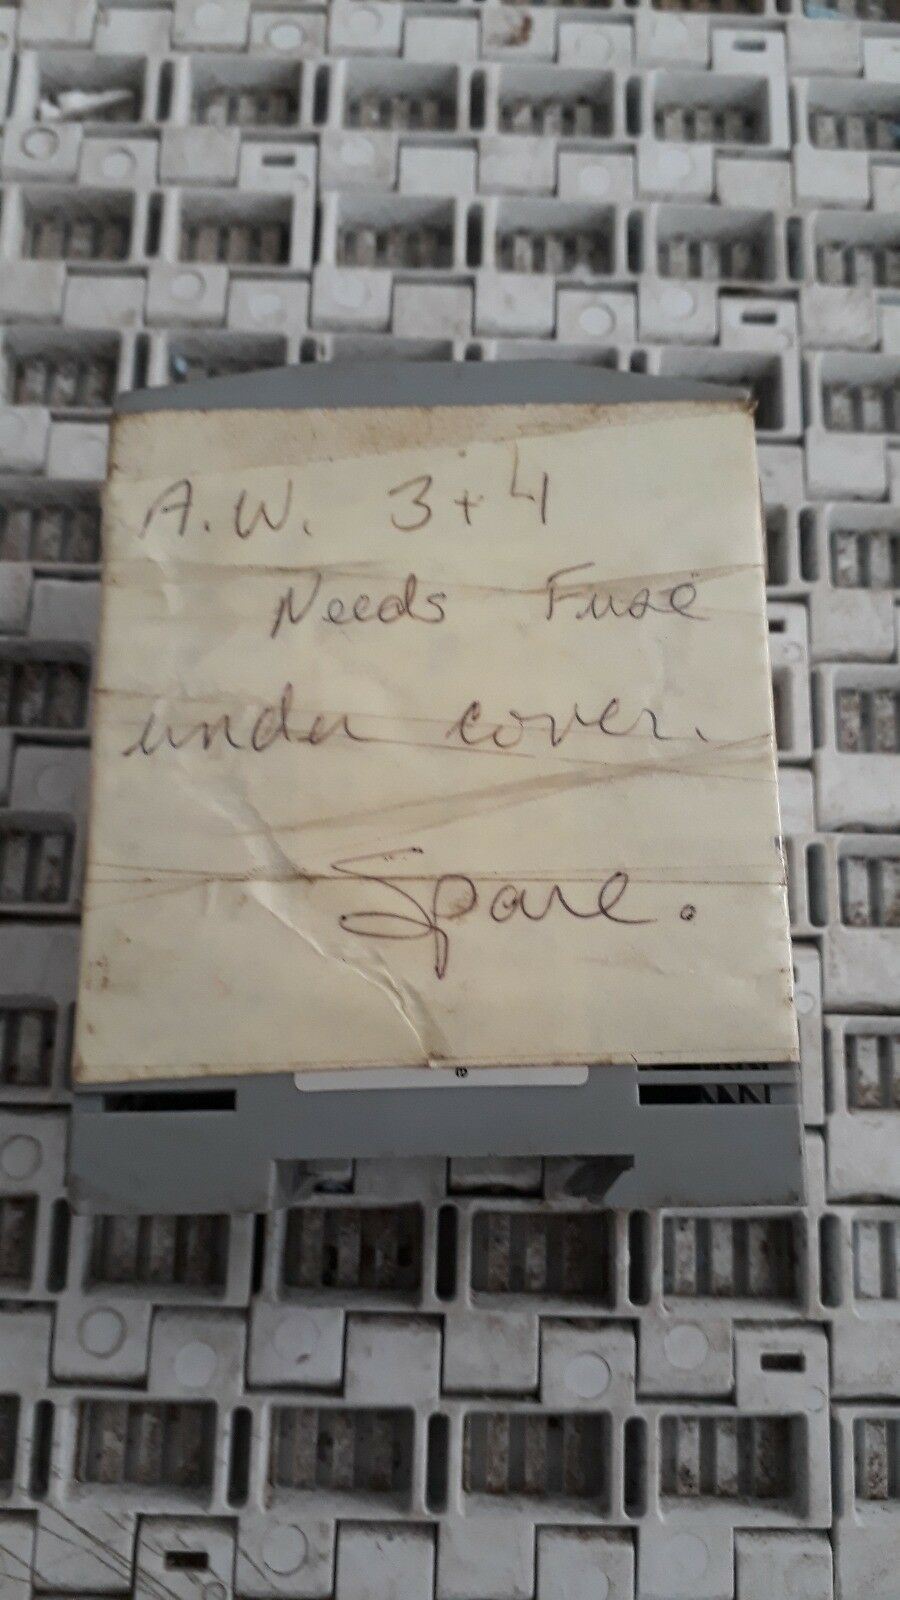 A.W. 3+4
Needs Fuse
under cover.
Spare.